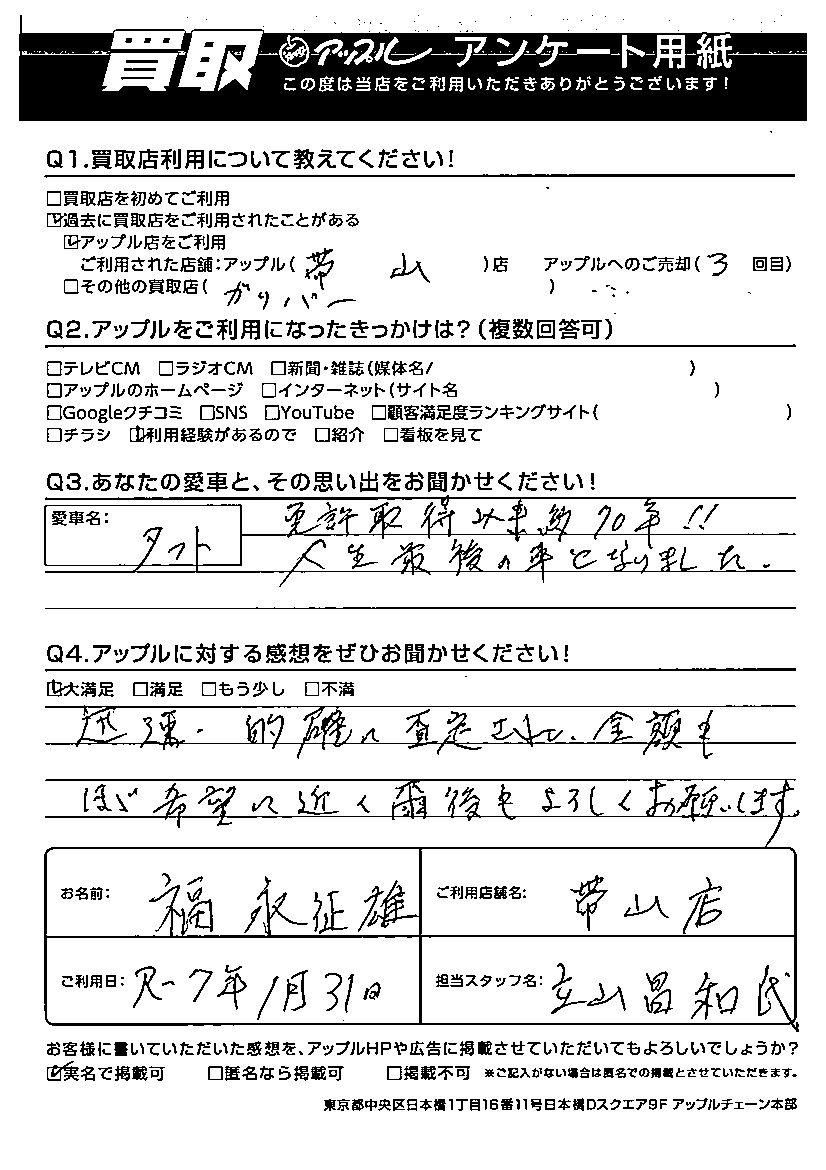 買取 アップル アンケート用紙
この度は当店をご利用いただきありがとうございます!
Q1.買取店利用について教えてください!
□買取店を初めてご利用
☑過去に買取店をご利用されたことがある
☑アップル店をご利用
ご利用された店舗:アップル(帯山)店 アップルへのご売却(3回目)
□その他の買取店(ガリバー)
Q2.アップルをご利用になったきっかけは?(複数回答可)
□テレビCM □ラジオCM □新聞・雑誌(媒体名/ )
□アップルのホームページ □インターネット(サイト名 )
□Googleクチコミ □SNS □YouTube □顧客満足度ランキングサイト( )
□チラシ ☑利用経験があるので □紹介 □看板を見て
Q3.あなたの愛車と、その思い出をお聞かせください!
愛車名: タフト
免許取得以来約70年!!
人生最後の車となりました.
Q4.アップルに対する感想をぜひお聞かせください!
☑大満足 □満足 □もう少し □不満
迅速・的確に査定されて、金額も
ほぼ希望に近く爾後もよろしくお願いします。
お名前: 福永征雄 ご利用店舗名: 帯山店
ご利用日: R-7年1月31日 担当スタッフ名: 立山昌和氏
お客様に書いていただいた感想を、アップルHPや広告に掲載させていただいてもよろしいでしょうか?
☑実名で掲載可 □匿名なら掲載可 □掲載不可 ※ご記入がない場合は匿名での掲載とさせていただきます。
東京都中央区日本橋1丁目16番11号日本橋Dスクエア9F アップルチェーン本部